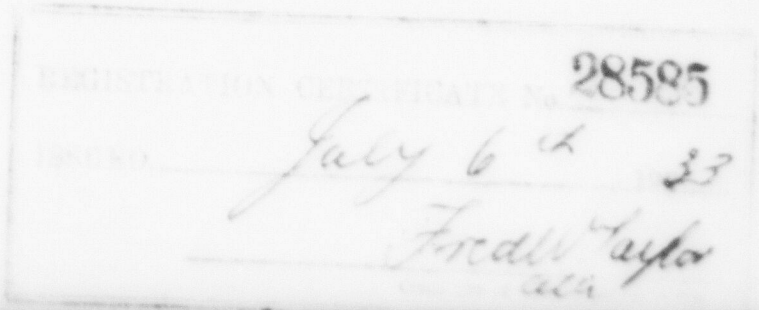 REGISTRATION CERTIFICATE No. 28585
ISSUED July 6th 1933
Fred W Taylor